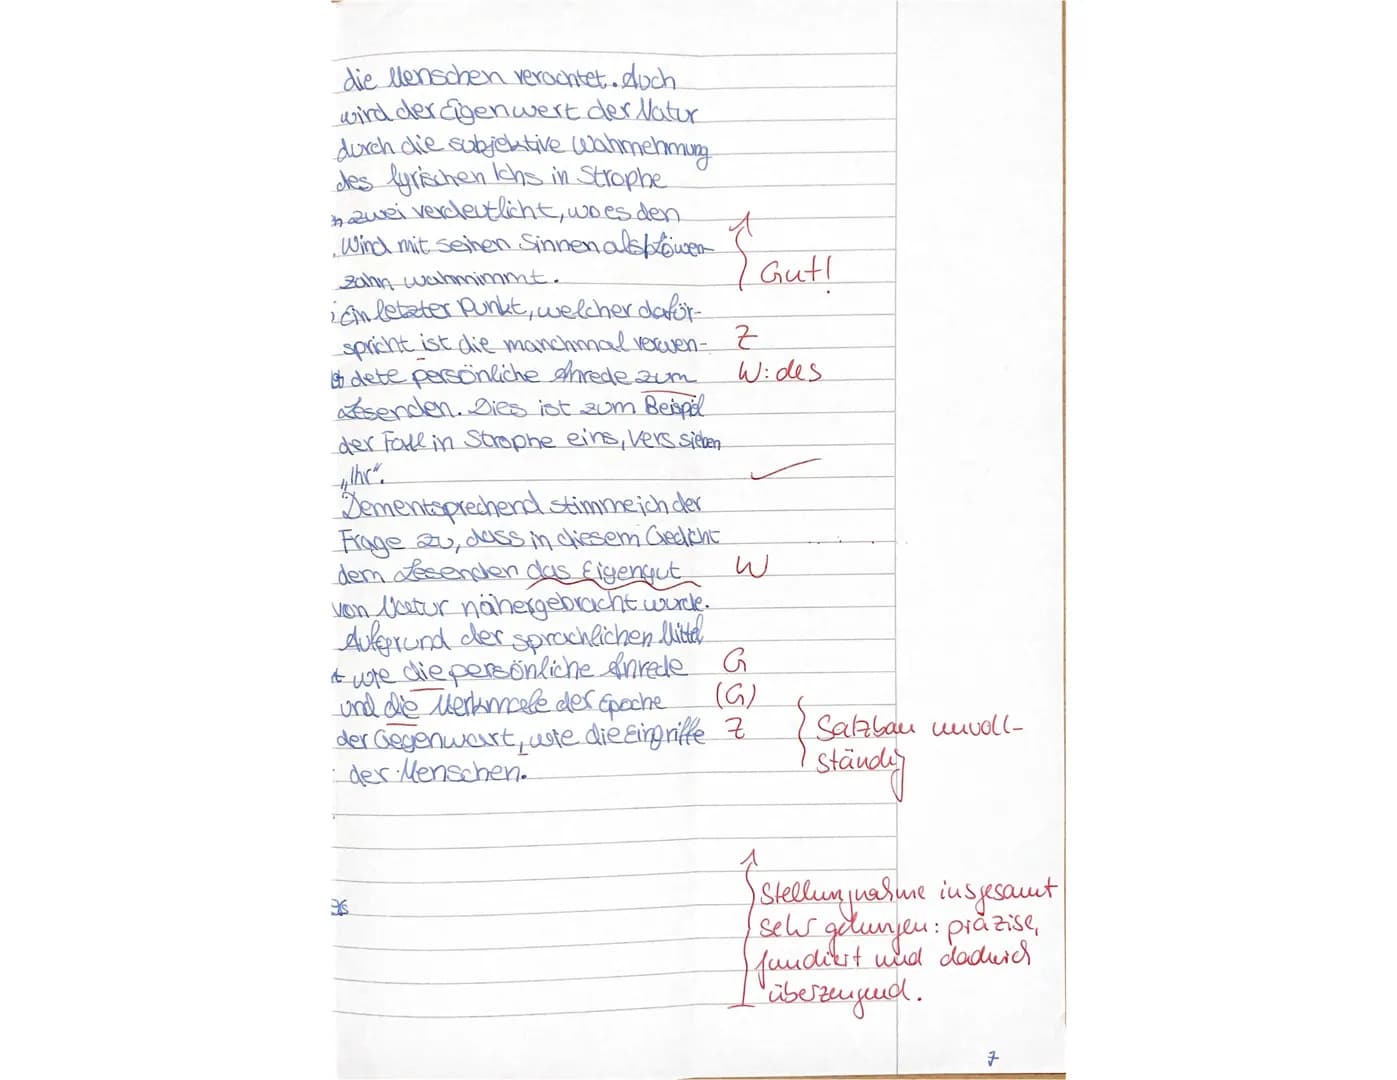 die Menschen verachtet. Auch
wird der Eigenwert der Natur
durch die subjektive Wahrnehmung
des lyrischen Ichs in Strophe
zwei verdeutlicht, wo es den
Wind mit seinen Sinnen als Löwen-
zahn wahrnimmt.
Gut!
Ein letzter Punkt, welcher dafür-
spricht ist die manchmal verwen-
Z
dete persönliche Anrede zum
W: des
Lesenden. Dies ist zum Beispiel
der Fall in Strophe eins, Vers sieben
„Ihr“.
Dementsprechend stimme ich der
Frage zu, dass in diesem Gedicht
dem Lesenden das Eigengut
W
von Natur nähergebracht wurde.
Aufgrund der sprachlichen Mittel
wie die persönliche Anrede
G
und die Merkmale der Epoche
(G)
der Gegenwart, wie die Eingriffe
Z
der Menschen.
Satzbau unvoll-
ständig
Stellungnahme insgesamt
sehr gelungen: präzise,
fundiert und dadurch
überzeugend.
7